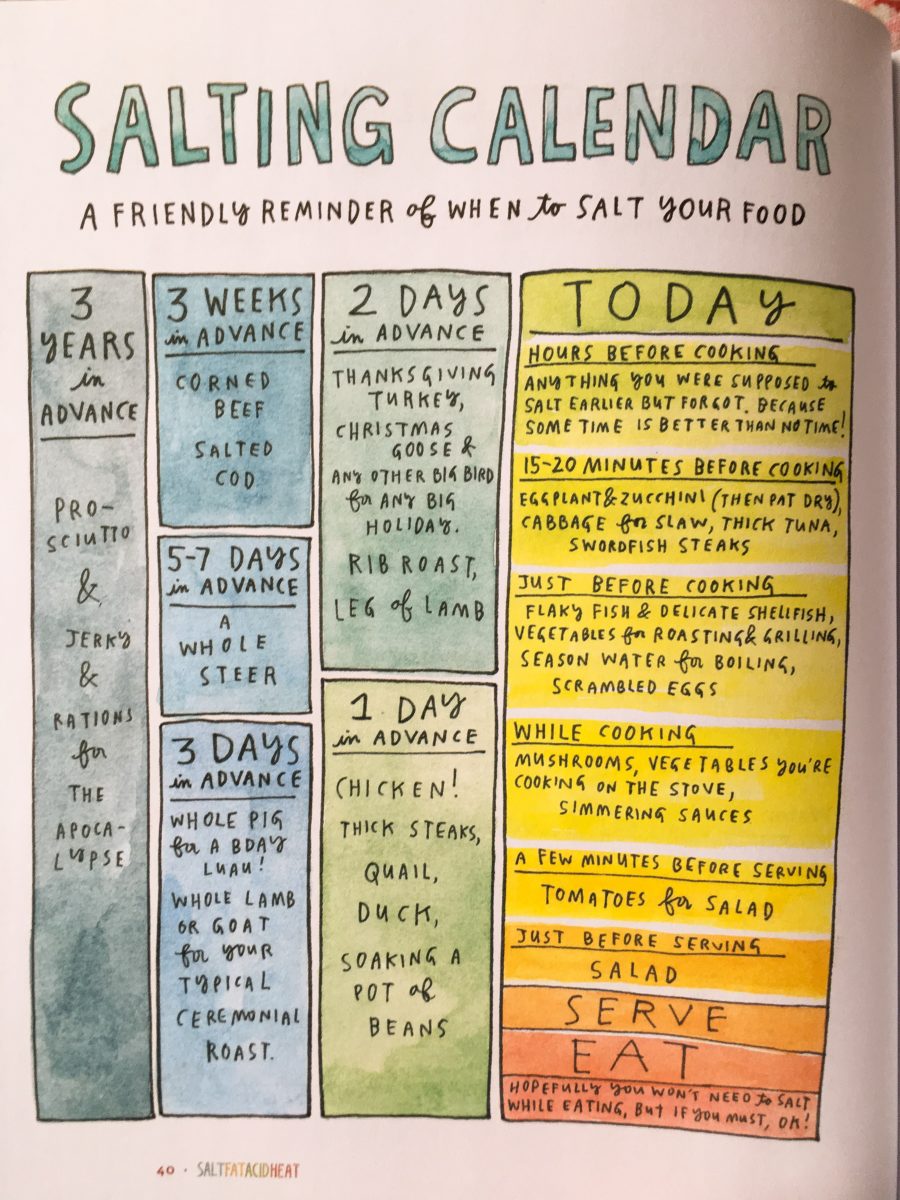 SALTING CALENDAR
A FRIENDLY REMINDER of WHEN to SALT YOUR FOOD
3
YEARS
in
ADVANCE
PRO-
SCIUTTO
&
JERKY
&
RATIONS
for
THE
APOCA-
LYPSE
3 WEEKS
in ADVANCE
CORNED
BEEF
SALTED
COD
5-7 DAYS
in ADVANCE
A
WHOLE
STEER
3 DAYS
in ADVANCE
WHOLE PIG
for A BDAY
LUAU!
WHOLE LAMB
OR GOAT
for YOUR
TYPICAL
CEREMONIAL
ROAST.
2 DAYS
in ADVANCE
THANKSGIVING
TURKEY,
CHRISTMAS
GOOSE &
ANY OTHER BIG BIRD
for ANY BIG
HOLIDAY.
RIB ROAST,
LEG of LAMB
1 DAY
in ADVANCE
CHICKEN!
THICK STEAKS,
QUAIL,
DUCK,
SOAKING A
POT of
BEANS
TODAY
HOURS BEFORE COOKING
ANYTHING YOU WERE SUPPOSED to
SALT EARLIER BUT FORGOT. BECAUSE
SOME TIME IS BETTER THAN NO TIME!
15-20 MINUTES BEFORE COOKING
EGGPLANT & ZUCCHINI (THEN PAT DRY),
CABBAGE for SLAW, THICK TUNA,
SWORDFISH STEAKS
JUST BEFORE COOKING
FLAKY FISH & DELICATE SHELLFISH,
VEGETABLES for ROASTING & GRILLING,
SEASON WATER for BOILING,
SCRAMBLED EGGS
WHILE COOKING
MUSHROOMS, VEGETABLES YOU'RE
COOKING ON THE STOVE,
SIMMERING SAUCES
A FEW MINUTES BEFORE SERVING
TOMATOES for SALAD
JUST BEFORE SERVING
SALAD
SERVE
EAT
HOPEFULLY YOU WON'T NEED to SALT
WHILE EATING, BUT IF YOU MUST, OK!
40 · SALTFATACIDHEAT